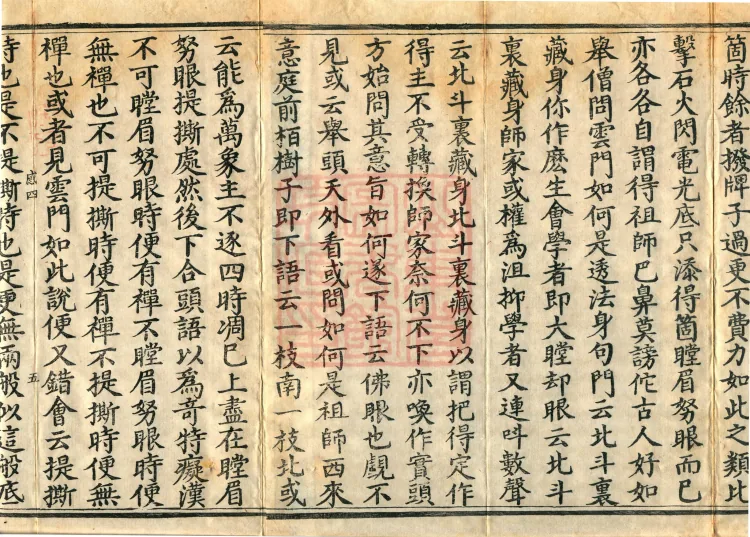 箇時餘者撥牌子過更不費力如此之類比
擊石火閃電光底只添得箇瞠眉努眼而已
亦各各自謂得祖師巴鼻莫謗佗古人好如
舉僧問雲門如何是透法身句門云北斗裏
藏身你作麽生會學者即大瞠却眼云北斗
裏藏身師家或權爲沮抑學者又連叫數聲
云北斗裏藏身北斗裏藏身以謂把得定作
得主不受轉換師家奈何不下亦喚作實頭
方始問其意旨如何遂下語云佛眼也覷不
見或云舉頭天外看或問如何是祖師西來
意庭前栢樹子即下語云一枝南一枝北或
云能爲萬象主不逐四時凋已上盡在瞠眉
努眼提撕處然後下合頭語以爲奇特癡漢
不可瞠眉努眼時便有禪不瞠眉努眼時便
無禪也不可提撕時便有禪不提撕時便無
禪也或者見雲門如此說便又錯會云提撕
感四
五
時也是不提撕時也是更無兩般似這般底